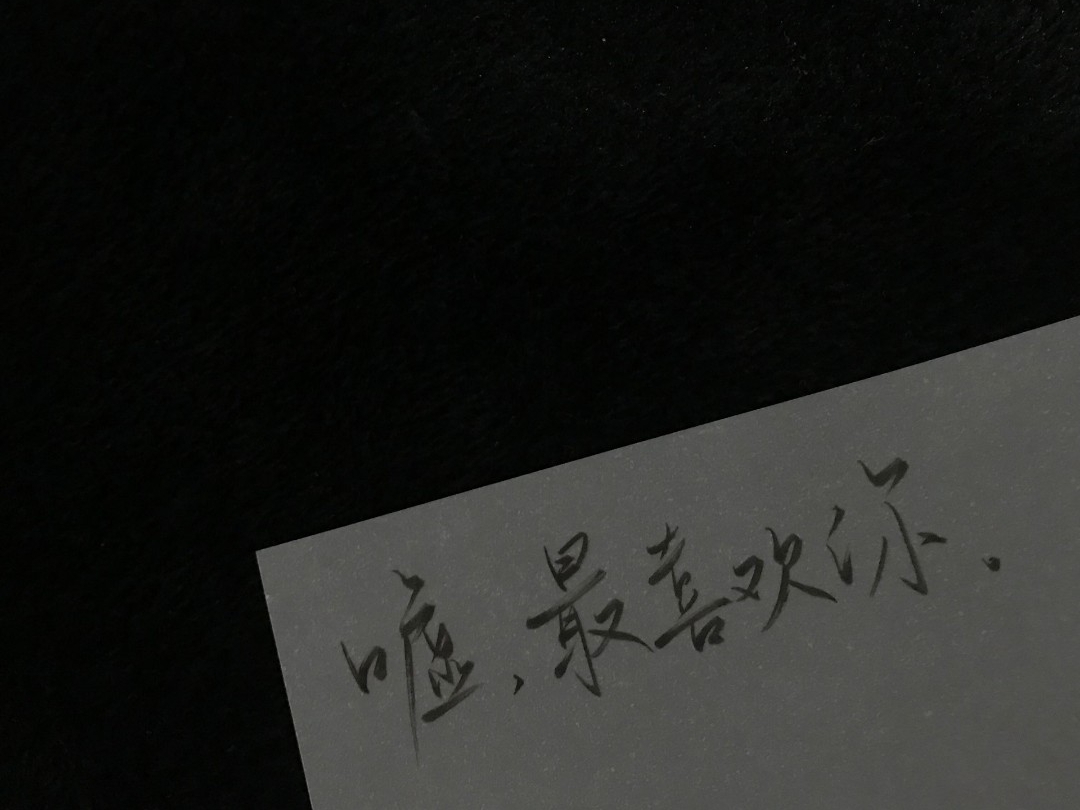 嘘,最喜欢你.